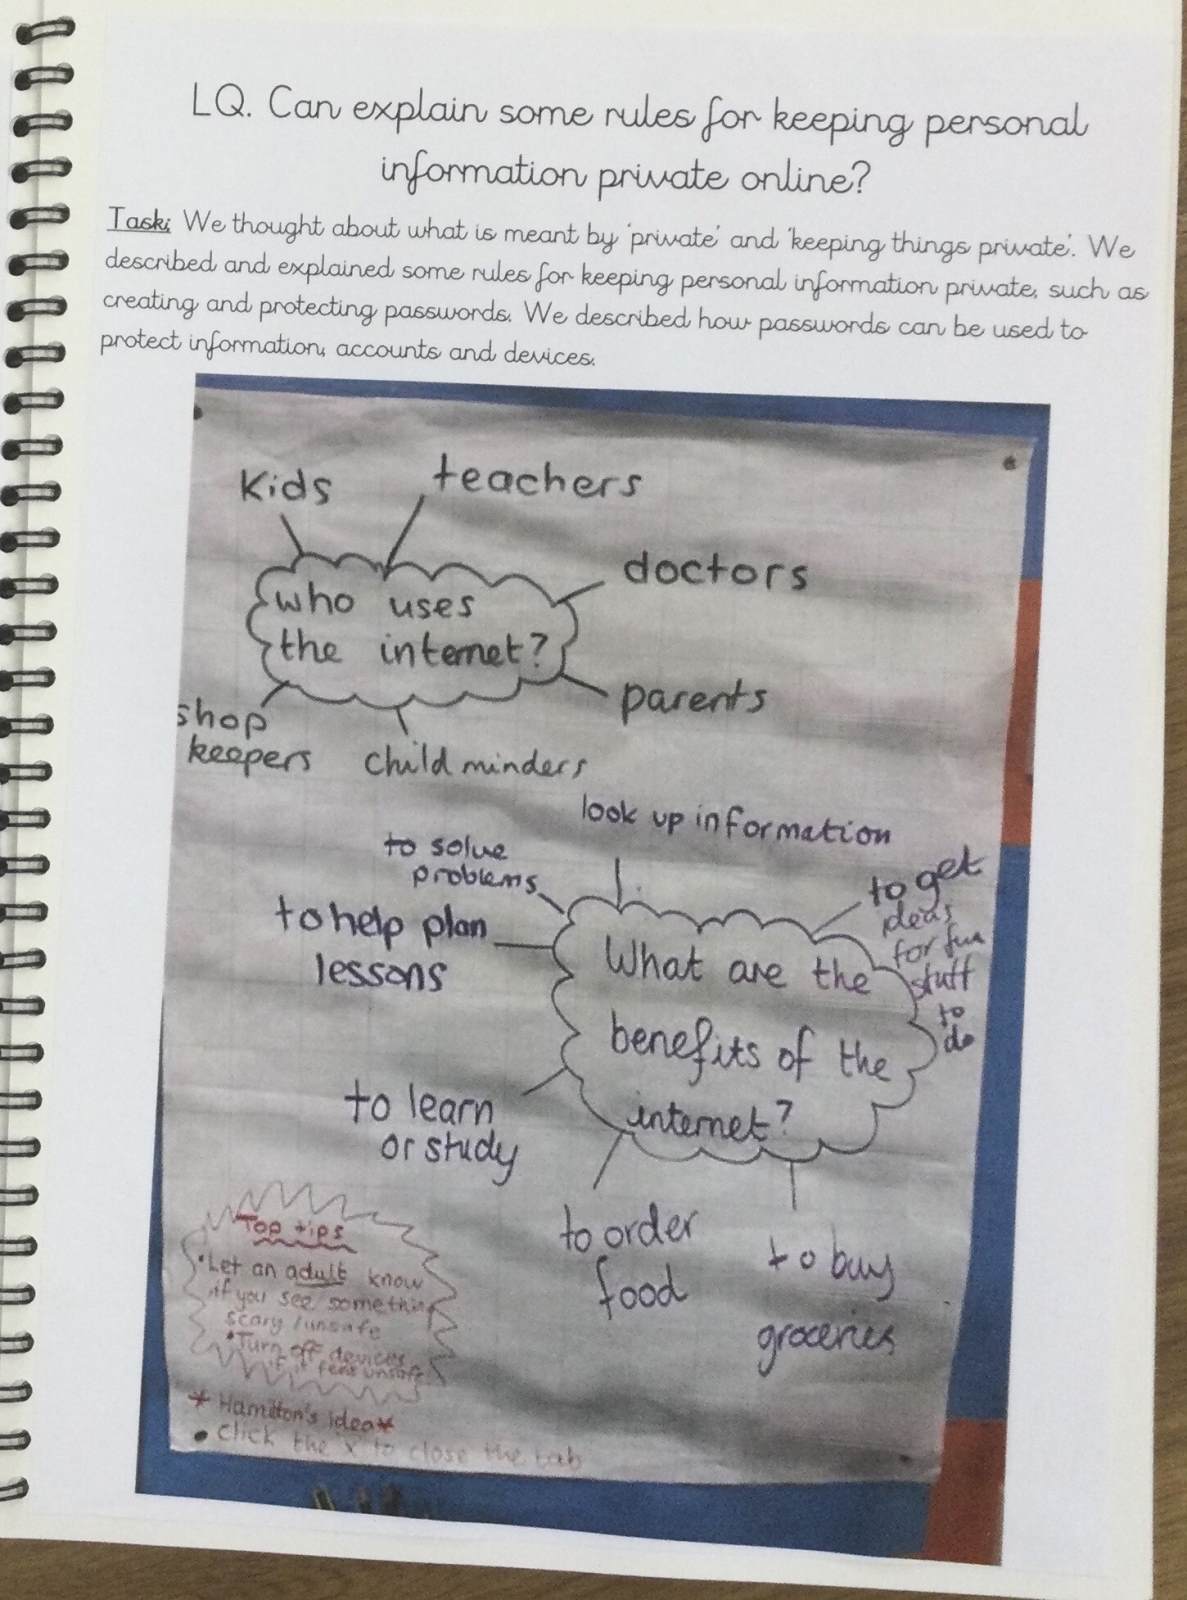 LQ. Can explain some rules for keeping personal
information private online?
Task: We thought about what is meant by 'private' and 'keeping things private'. We
described and explained some rules for keeping personal information private, such as
creating and protecting passwords. We described how passwords can be used to
protect information, accounts and devices.
Kids
teachers
doctors
who uses
the internet?
parents
shop
keepers
child minders
look up information
to solve
problems
to get
ideas
for fun
stuff
to
do
to help plan
lessons
What are the
benefits of the
internet?
to learn
or study
to order
food
to buy
groceries
Top tips
• Let an adult know
if you see something
scary / unsafe
• Turn off devices
if it feels unsafe
* Hamilton's idea *
• click the 'x' to close the tab